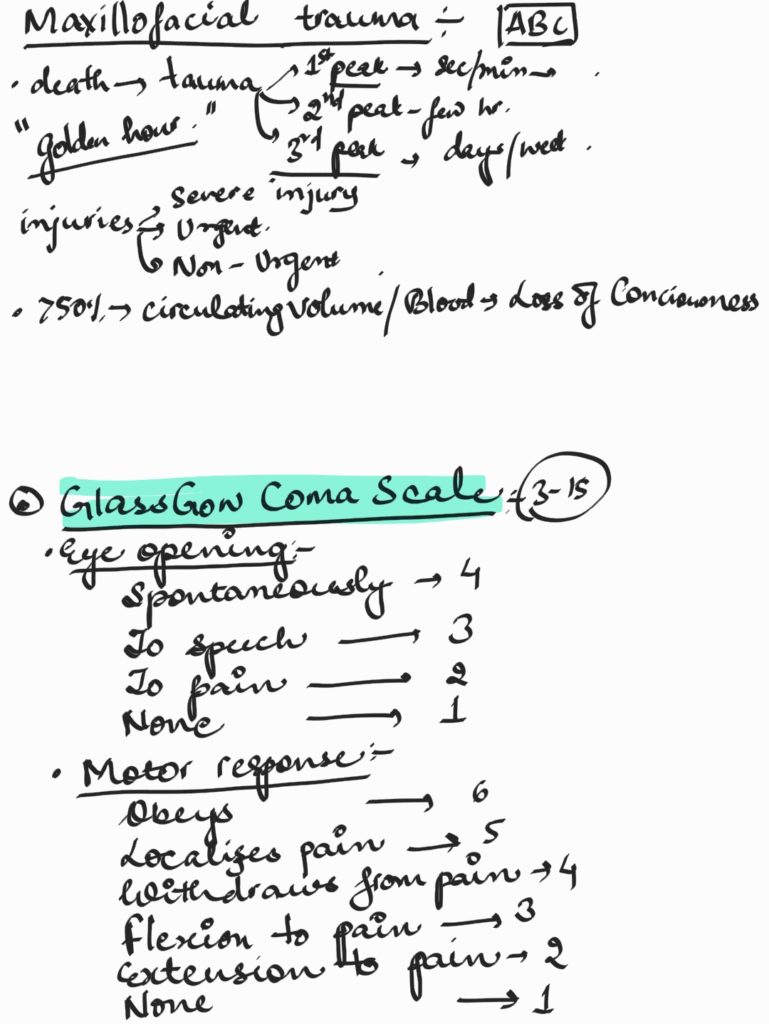 Maxillofacial trauma :- ABC
• death → tauma → 1st peak → sec/min →
→ 2nd peak - few hr.
"golden hour." → 3rd peak → days/week
injuries → Severe injury
→ Urgent.
→ Non-Urgent
• >50% → circulating volume/Blood → Loss of Conciousness
GlassGow Coma Scale :- 3-15
• Eye opening:-
Spontaneously → 4
To speech → 3
To pain → 2
None → 1
• Motor response:-
Obeys → 6
Localizes pain → 5
Withdraws from pain → 4
flexion to pain → 3
extension to pain → 2
None → 1